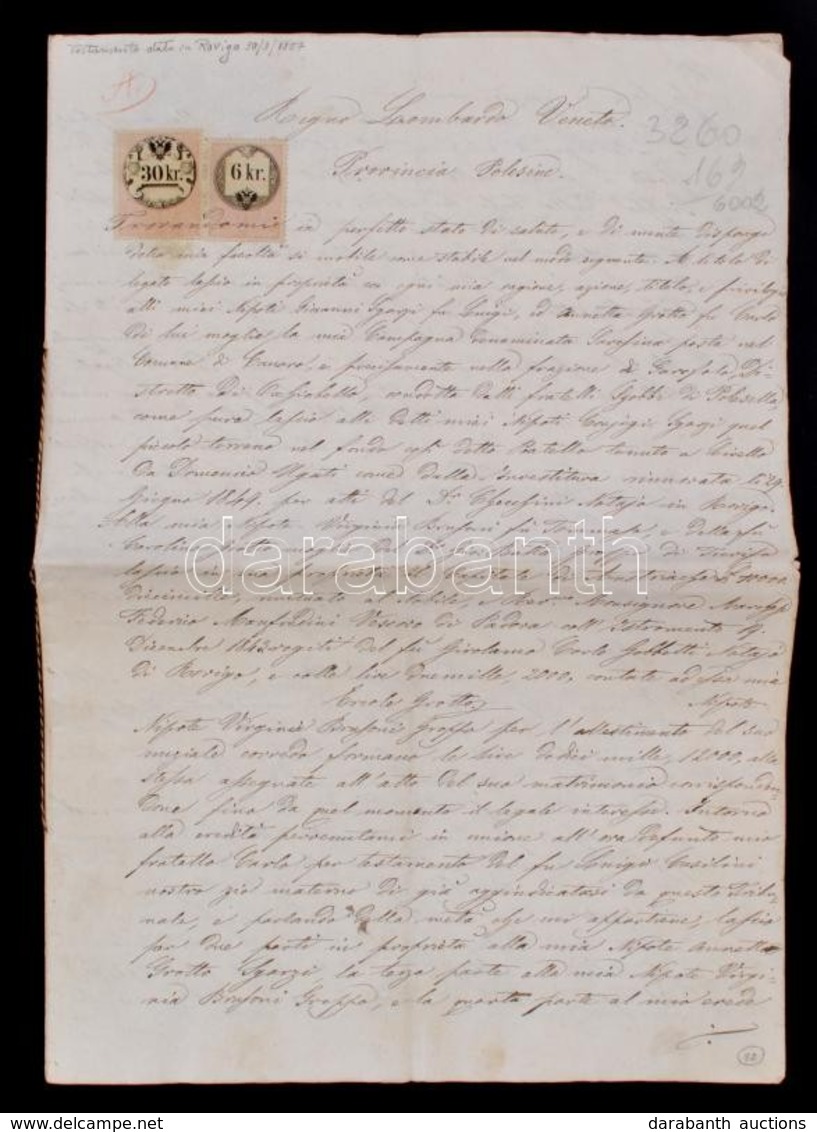 Testamento datato in Rovigo 30/3/1857
A.
Regno Lombardo Veneto.
3260
Provincia Polesine.
162
6002
30 kr.
6 kr.
Trovandomi in perfetto stato di salute, e di mente dispongo
della mia facoltà sì mobile come stabile nel modo seguente. A titolo di
legato lascio in proprietà con ogni mia ragione, azione, titolo, e privilegi
alli miei Nipoti Giovanni Sgarzi fu Luigi, ed Annetta Grotto fu Carlo
di lui moglie la mia Campagna denominata posta nel
Comune di Canaro, e precisamente nella frazione di Di-
stretto di condotta dalli fratelli di Polesella,
come pure lascio alli detti miei Nipoti Conjugi Sgarzi quel
piccolo terreno nel fondo detto tenuto a Livello
da Domenico come dalla Investitura rinnovata li 29
Giugno 1849. per atti del Dr. Notajo in Rovigo.
Alla mia Nipote Virginia e della fu
Carolina Grotto di
lascio in sua proprietà il Capitale di Austriache £ 10000
diecimille, Monsignore
Federico Manfredini Vescovo di Padova coll'Istromento 19.
Dicembre 1843 rogiti del fu Girolamo Carlo Notajo
di Rovigo, e colle lire duemille, 2000, contate ad essa mia
Ercole Grotto
Nipote
Nipote Virginia per l'allestimento del suo
nuziale corredo formano le lire dodici mille, 12000, alla
stessa assegnate all'atto del suo matrimonio corrisponden-
done fino da quel momento il legale interesse. Intorno
alla eredità pervenutami in unione all'ora defunto mio
fratello Carlo per testamento del fu Luigi
nostro zio materno di già aggiudicatasi da questo Tribu-
nale, e parlando della metà che mi appartiene, lascio
per due parti in proprietà alla mia Nipote Annetta
Grotto Sgarzi, la terza parte alla mia Nipote Virgi-
nia e la quarta parte al mio erede
darabanth
darabanth auctions
www.delcampe.net